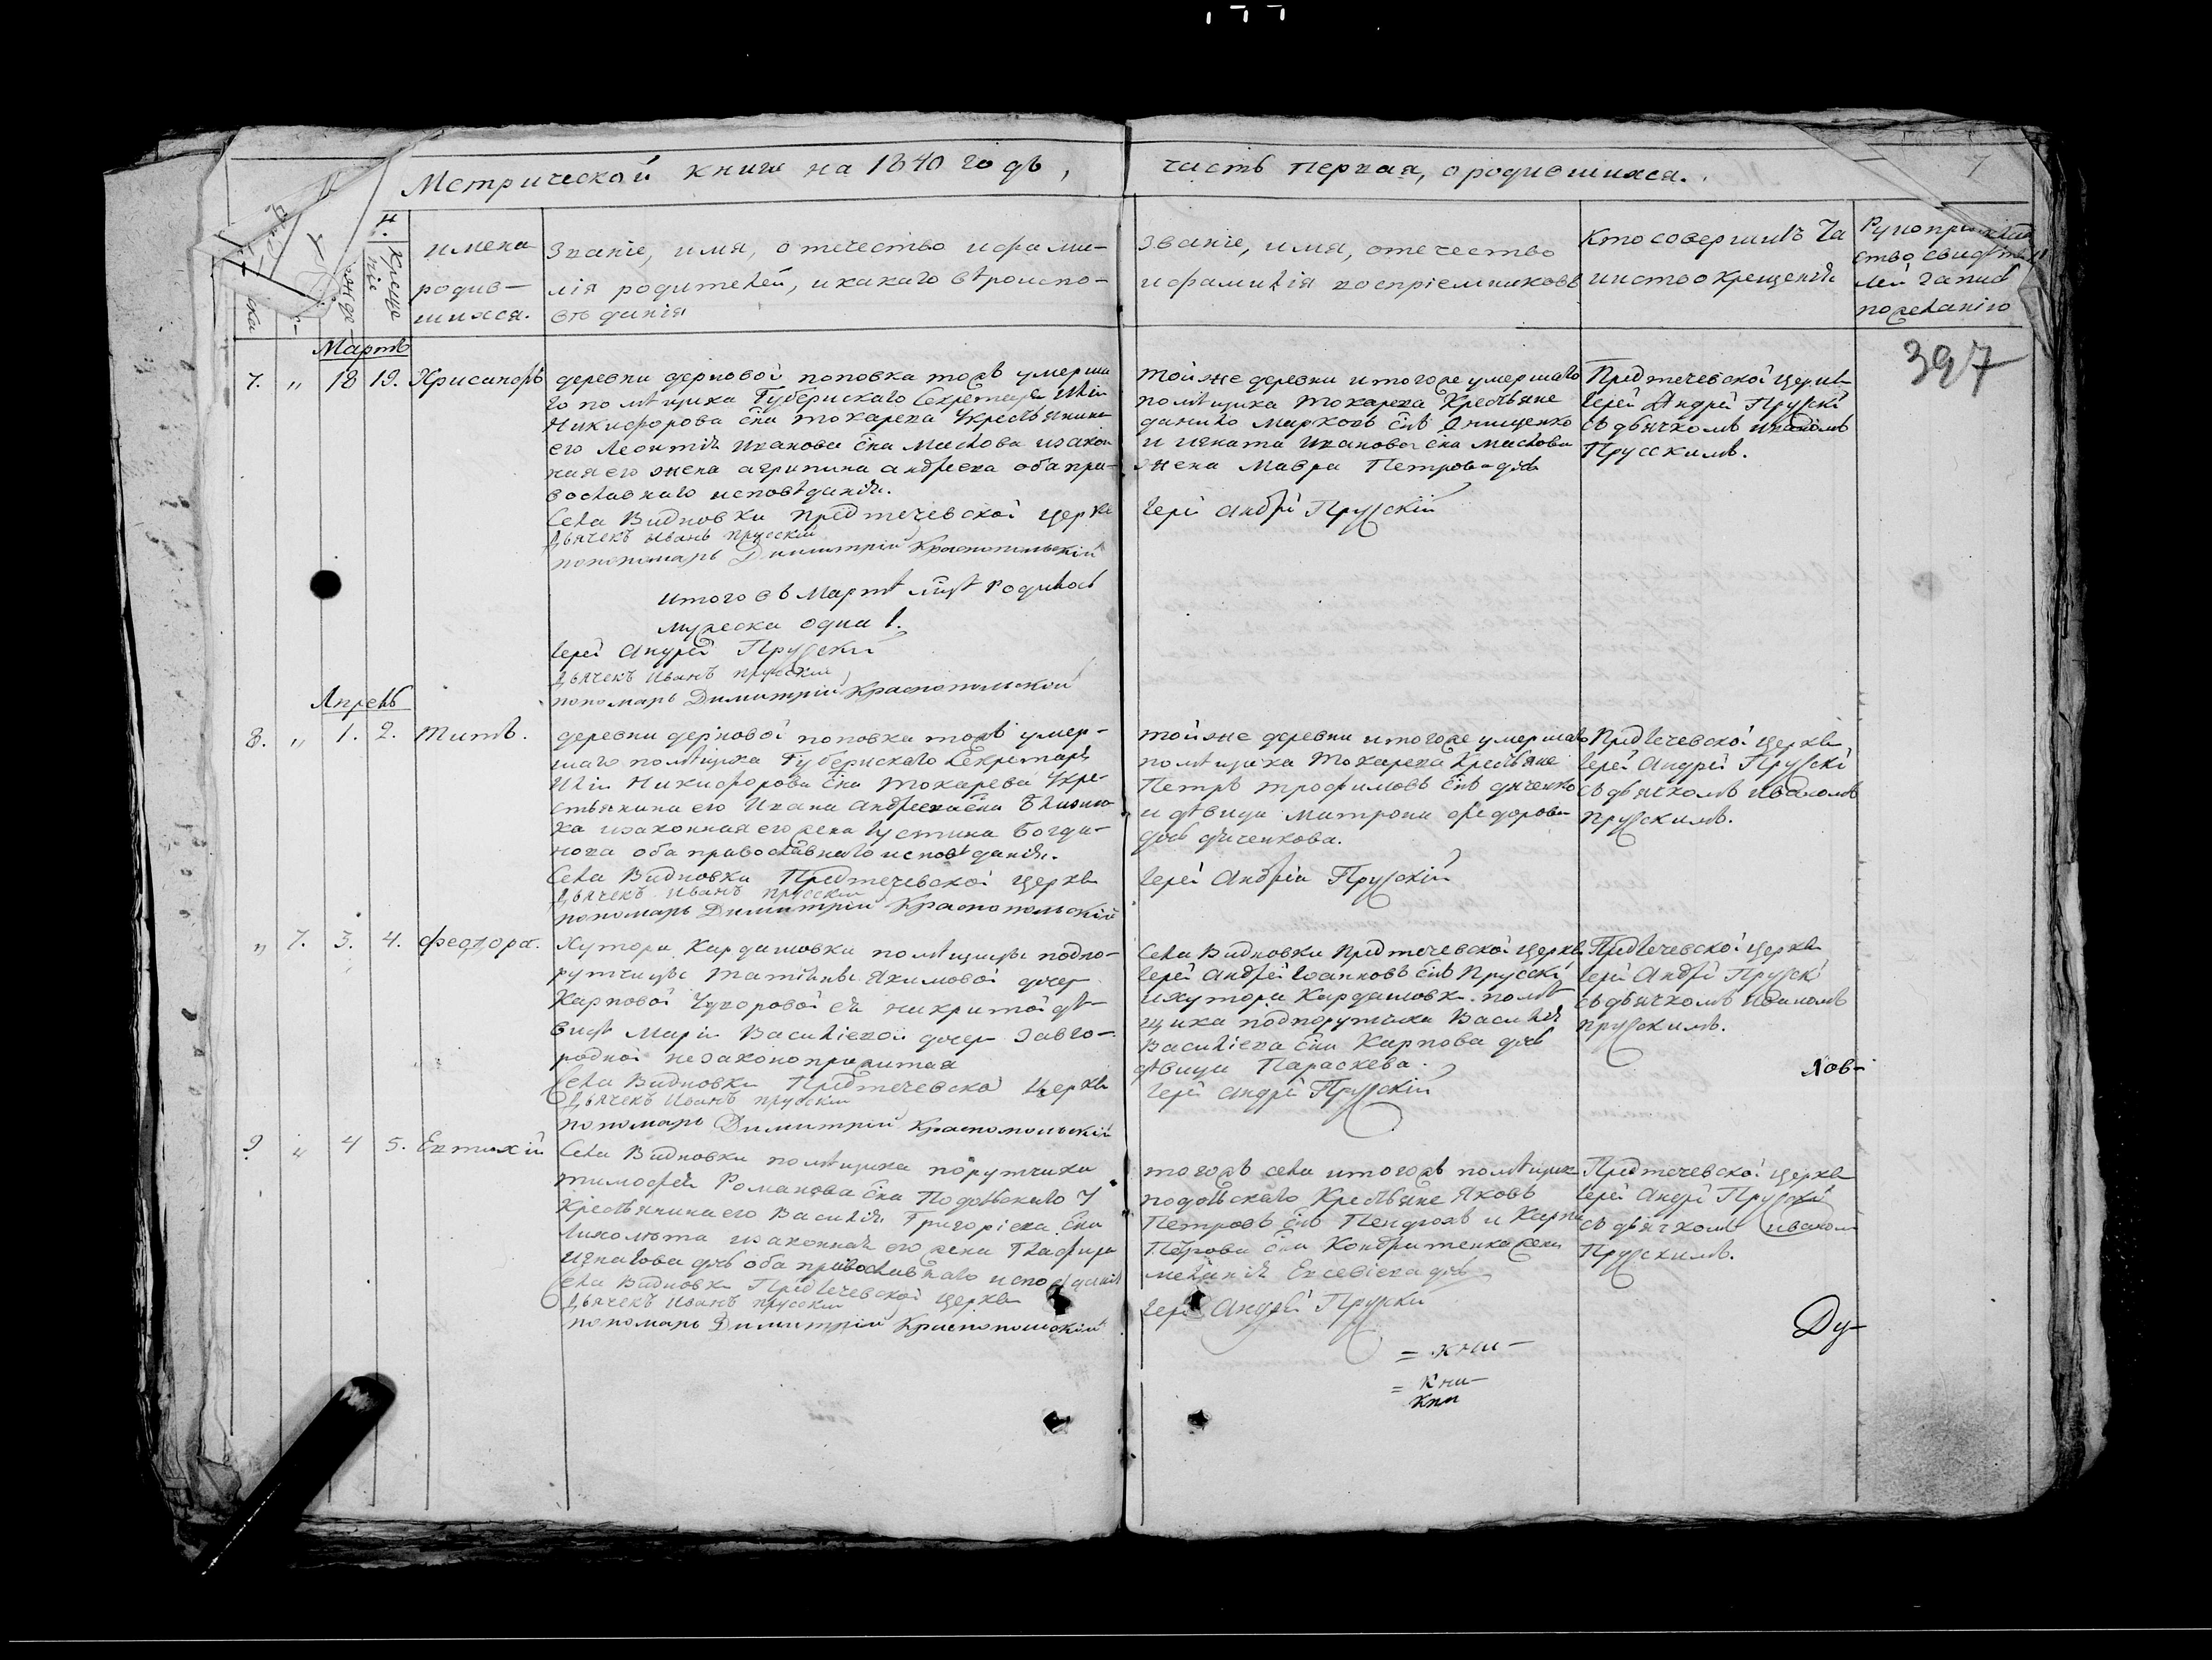 Метрической книги на 1840 годъ,
часть первая, о родившихся.
7
имена
родив-
шихся.
Званіе, имя, отечество и фами-
лія родителей, и какаго вѣроиспо-
вѣданія
Званіе, имя, отечество
и фамилія воспріемниковъ
Кто совершилъ Та
инство крещенія
ство свидѣте
лей запис
по желанію
397
Мартъ
7. " 18 19. Хрисанфъ
деревни дерновой поповка тожъ умерша
го помѣщика Губернскаго Секретаря Иліи
Никифорова Сна Токарева Укрестьянина
его Леонтія Иванова Сна Маслова изакон
ная его жена агрипина андреева оба пра-
вославнаго исповѣданія.
Села Видновки Предтечевской церкв
Дьячекъ Иванъ прусскій
пономарь Димитрій Краснопольскій
тойже деревни итогоже умершаго
помѣщика токарева Крестьяне
данило Марковъ Снъ Онищенко
и игната Иванова Сна Маслова
жена Мавра Петрова дчь
Іерей Андрей Прусскій
Предтечевской церкв
Іерей Андрей Прускі
съ дьячкомъ Иваномъ
Прусскимъ.
итого въ Мартѣ мцѣ Родилось
мужеска одна 1.
Іерей Андрей Прускій
Дьячекъ Иванъ прусскій
пономарь Димитрій Краснопольской
Апрель
8. " 1. 2. Титъ.
деревни дерновой поповка тожъ умер-
шаго помѣщика Губернскаго Секретаря
Иліи Никифорова Сна Токарева Укре-
стьянина его Ивана Андреева Сна
ка изаконная его жена Иустина Богда-
нова оба православнаго исповѣданія.
Села Видновки Предтечевской церкви
Дьячекъ Иванъ прусскій
пономарь Димитрій Краснопольскій
тойже деревни итогоже умершаго
помѣщика Токарева Крестьяне
Петръ трофимовъ Снъ
и дѣвица матрона федорова
дчь
Іерей Андрей Прусскій
Предтечевской церкви
Іерей Андрей Прускі
съ дьячкомъ Иваномъ
прускимъ.
" 7. 3. 4. феодора.
Хутора Кардашовки помѣщицы подпо-
ручицы татіаны Якимовой дчер
Карповой Чугоровой ея накритой дѣ-
вицѣ Маріи Василіевой дчер Завго-
родной незаконоприжитая
Села Видновки Предтечевской Церкви
Дьячекъ Иванъ прусскій
пономарь Димитрій Краснопольскій
Села Видновки Предтечевской Церкви
Іерей Андрей Іоанновъ Снъ Прусскі
и хутора Кардашовки помѣ
щика подпоручика Василія
Василіева Сна Карпова дчь
дѣвица Параскева.
Іерей Андрей Прусскій
Предтечевской церкви
Іерей Андрей Прускі
съ дьячкомъ Иваномъ
прускимъ.
Лов-
9 " 4 5. Евтихій
Села Видновки помѣщика поручика
тимофея Романова Сна Подольскаго У
Крестьянина его Василія Григоріева Сна
изаконная его жена Глафира
Игнатова дчь оба православнаго исповѣданія
Села Видновки Предтечевской церкви
Дьячекъ Иванъ прусскій
пономарь Димитрій Краснопольскій
тогожъ села итогожъ помѣщик
подольскаго Крестьяне Яковъ
Петровъ Снъ и Карпа
Петрова Сна Кондратенка жена
меланія Евсевіева дчь
Іерей Андрей Прускій
Предтечевской церкви
Іерей Андрей Прускій
съ дьячкомъ иваном
Прускимъ.
Ду-
= кни-
= Кни-
Кни